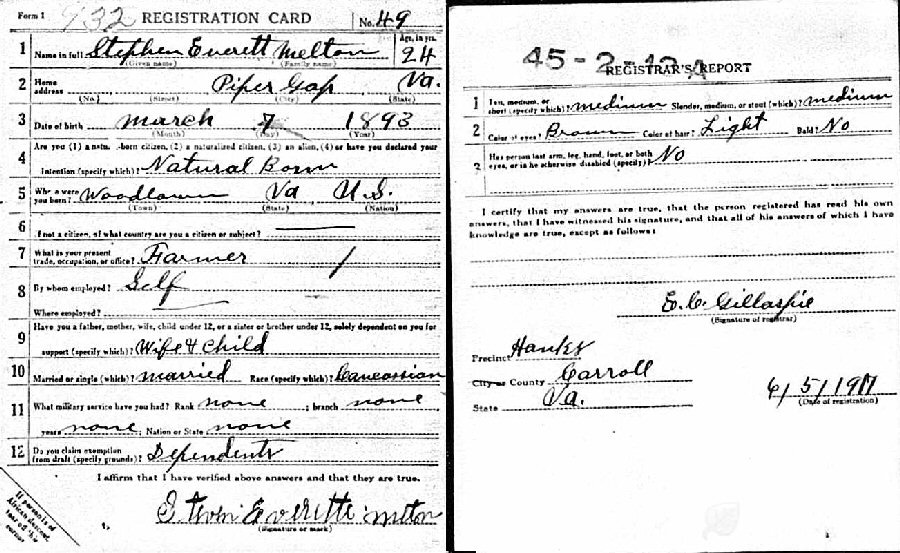 Form 1 932 REGISTRATION CARD No. 49
1 Name in full Stephen Everett Melton Age, in yrs. 24
(Given name) (Family name)
2 Home address Piper Gap Va.
(No.) (Street) (City) (State)
3 Date of birth March 7 1893
(Month) (Day) (Year)
4 Are you (1) a natural-born citizen, (2) a naturalized citizen, (3) an alien, (4) or have you declared your
intention (specify which)? Natural Born
5 Where were you born? Woodlawn Va U.S.
(Town) (State) (Nation)
6 If not a citizen, of what country are you a citizen or subject?
7 What is your present trade, occupation, or office? Farmer
8 By whom employed? Self
Where employed?
9 Have you a father, mother, wife, child under 12, or a sister or brother under 12, solely dependent on you for
support (specify which)? Wife & Child
10 Married or single (which)? married Race (specify which)? Caucassian
11 What military service have you had? Rank none ; branch none
years none ; Nation or State none
12 Do you claim exemption from draft (specify grounds)? Dependents
I affirm that I have verified above answers and that they are true.
Steven Everette Melton
(Signature or mark)
If person is of
African descent,
tear off this
corner
45-2-12 A
REGISTRAR'S REPORT
1 Tall, medium, or short (specify which)? medium Slender, medium, or stout (which)? medium
2 Color of eyes? Brown Color of hair? Light Bald? No
3 Has person lost arm, leg, hand, foot, or both eyes, or is he otherwise disabled (specify)? No
I certify that my answers are true, that the person registered has read his own
answers, that I have witnessed his signature, and that all of his answers of which I have
knowledge are true, except as follows:
E. C. Gillaspie
(Signature of registrar)
Precinct Hanks
City or County Carroll
State Va. 6/5/1917
(Date of registration)